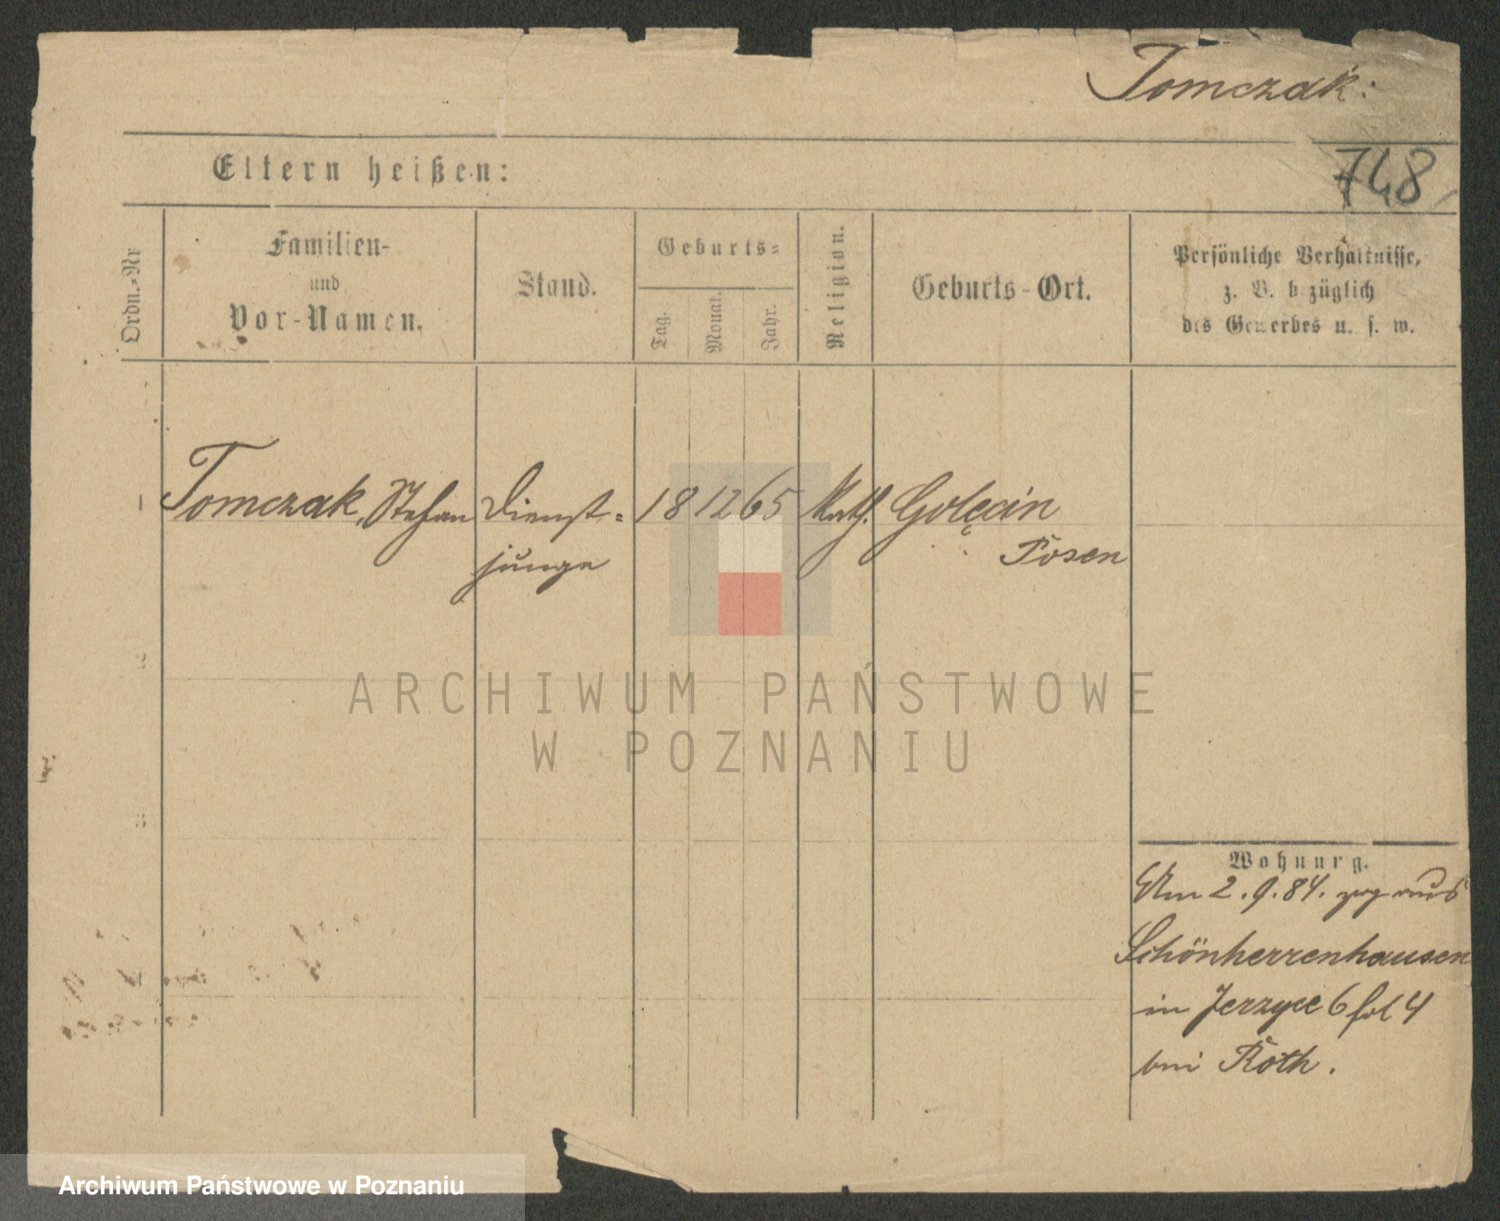 Tomczak:
Eltern heißen:
748
Ordn.-Nr
Familien-
und
Vor-Namen.
Stand.
Geburts-
Tag.
Monat.
Jahr.
Religion.
Geburts-Ort.
Persönliche Verhältnisse,
z. B. bezüglich
des Gewerbes u. s. w.
1
Tomczak, Stefan
Dienst-
junge
18 12 65
Kath.
Golęcin
Posen
2
3
Wohnung.
Am 2.9.84. zog aus
Schönherrenhausen
in Jerzyce 6 fol 4
bei Roth.
ARCHIWUM PAŃSTWOWE
W POZNANIU
Archiwum Państwowe w Poznaniu